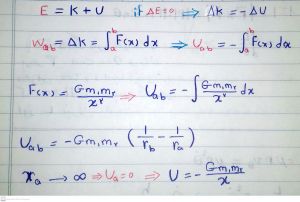 E = K + U   if ΔE=0 → ΔK = -ΔU
W_ab = ΔK = ∫_a^b F(x) dx ⇒ U_ab = -∫_a^b F(x) dx
F(x) = Gm₁m₂/x² ⇒ U_ab = -∫ Gm₁m₂/x² dx
U_ab = -Gm₁m₂ (1/r_b - 1/r_a)
x_a → ∞ ⇒ U_a = 0 ⇒ U = -Gm₁m₂/x